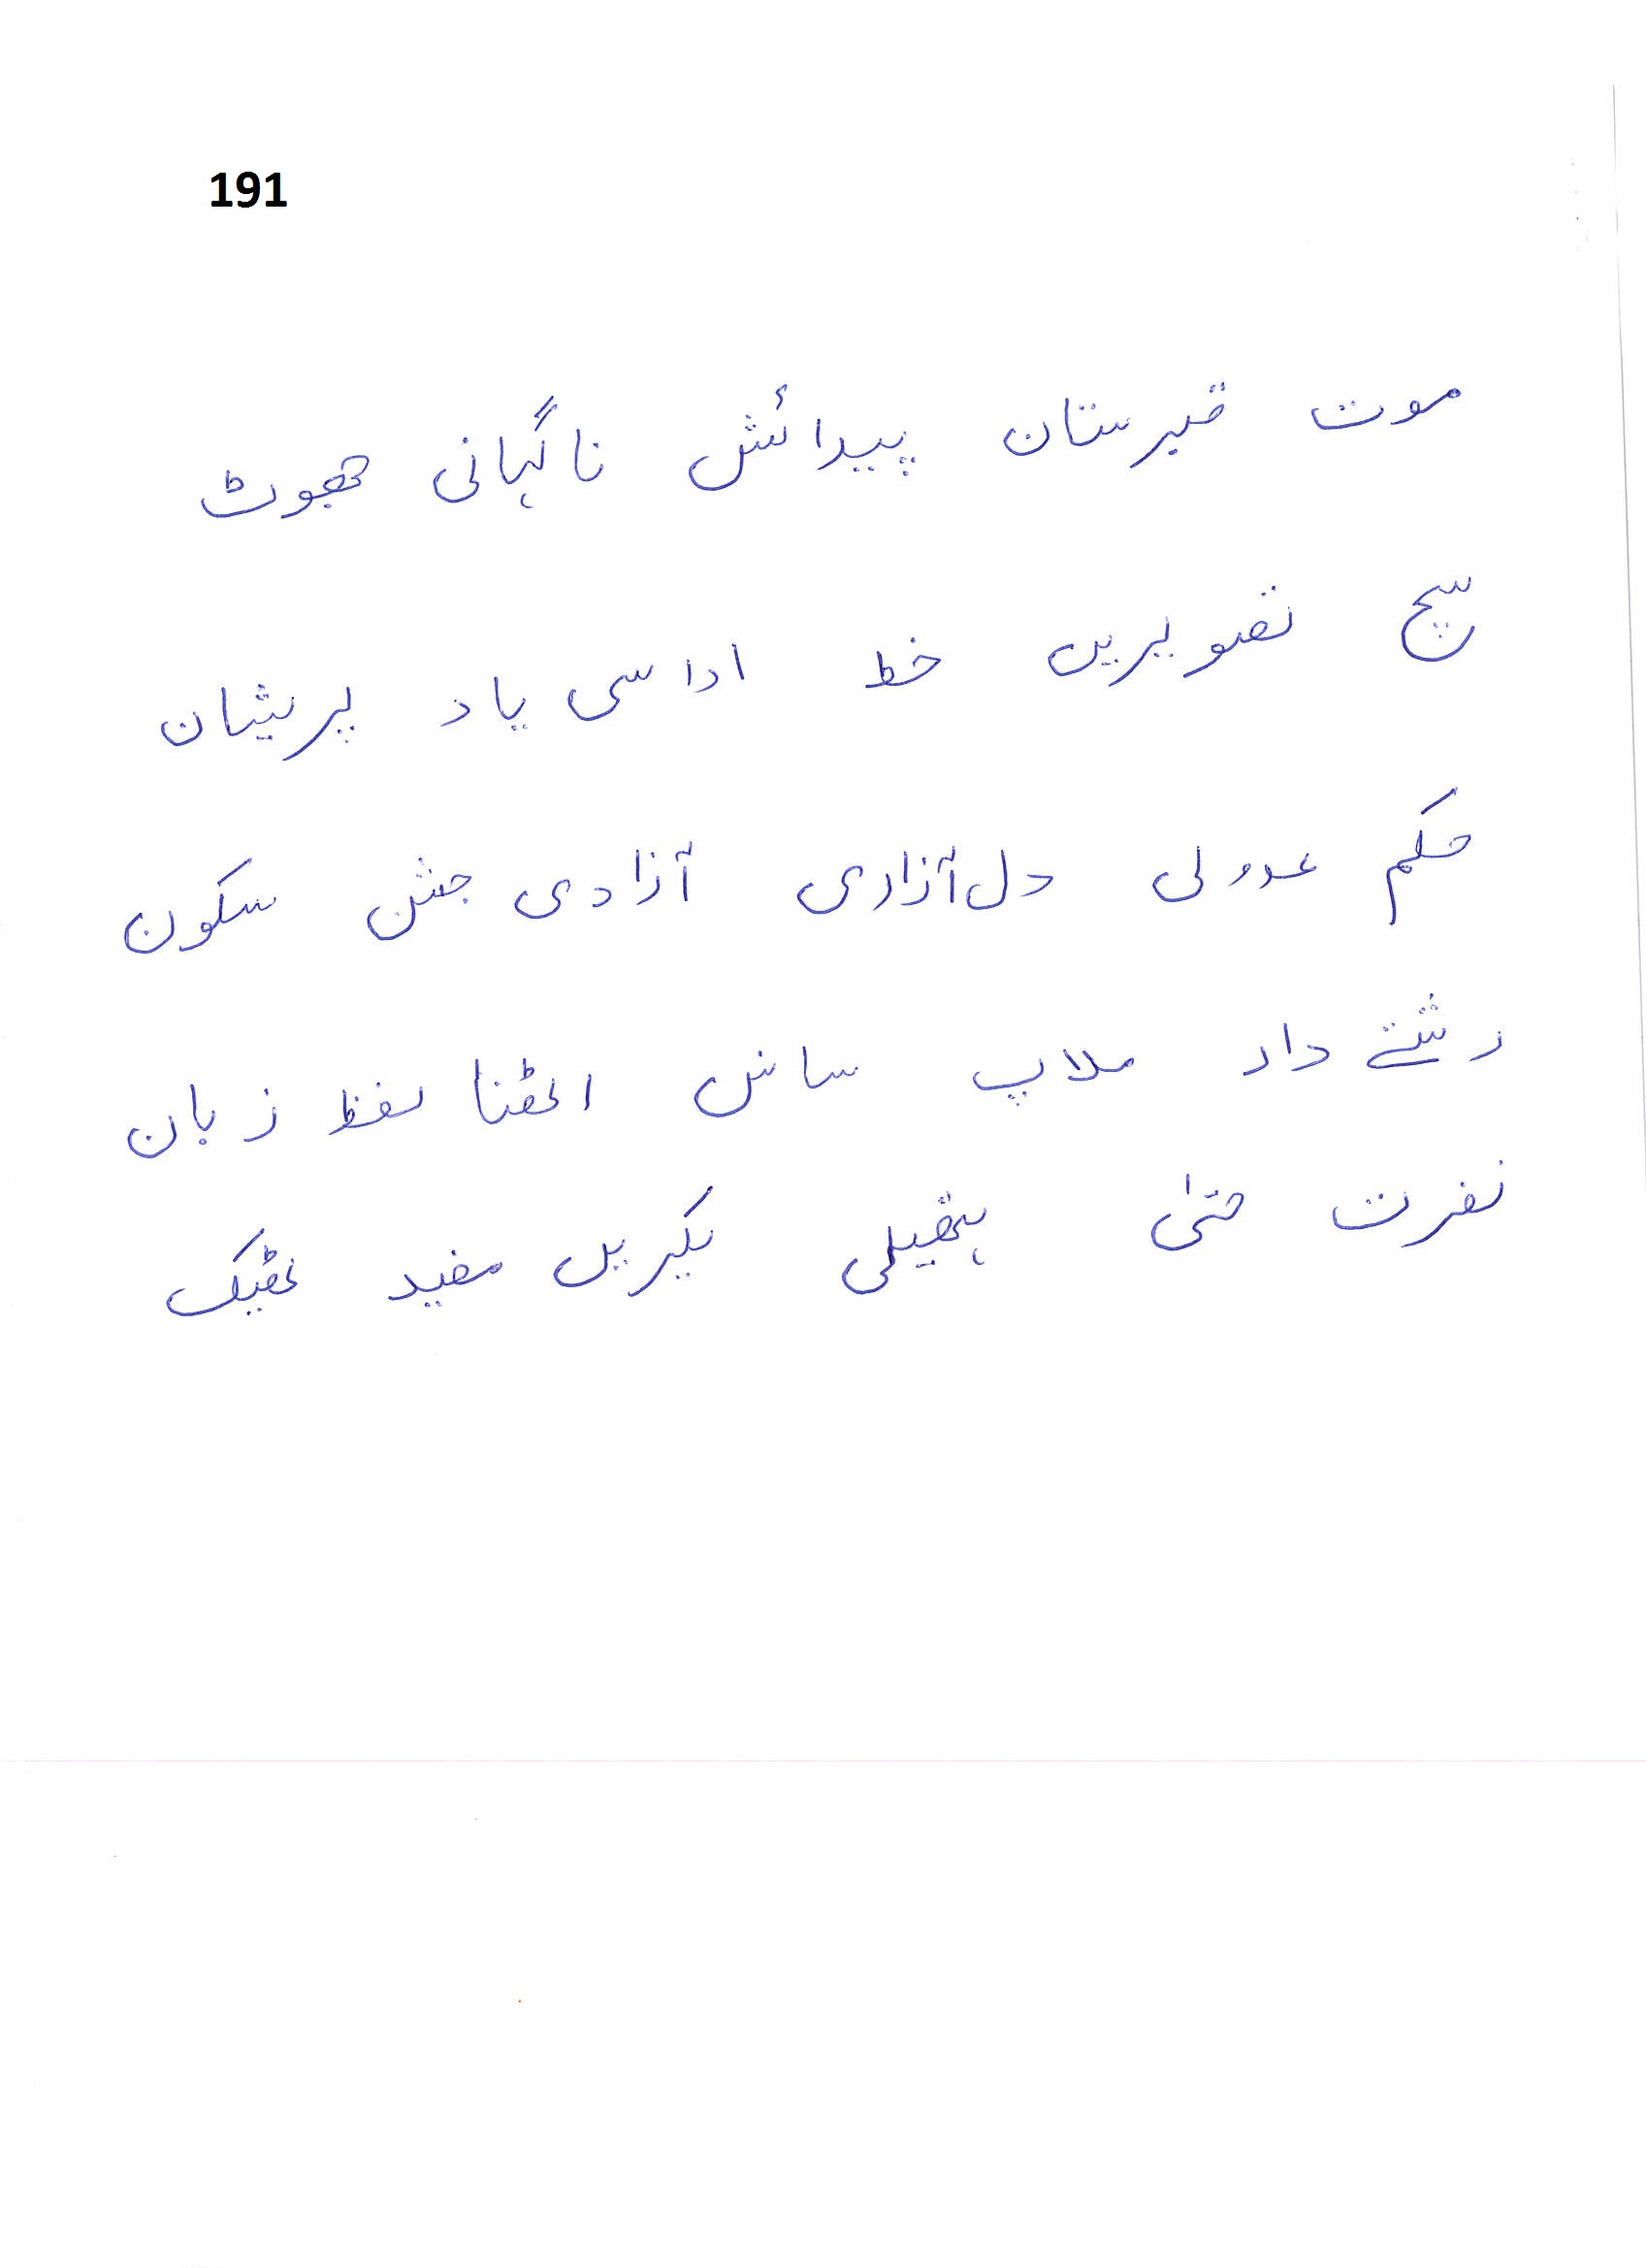 191
موت قبرستان پیدائش ناگہانی جھوٹ
سچ تصویریں خط اداسی یاد پریشان
حکم عدولی دل آزاری آزادی جشن سکون
رشتے دار ملاپ سانس اٹھنا لفظ زبان
نفرت حتیٰ ہتھیلی لکیریں مفید ٹھیک